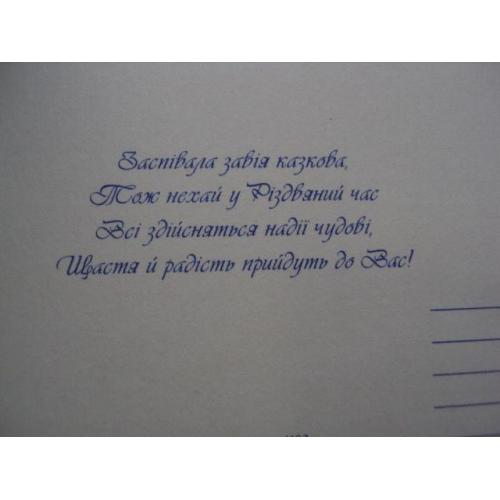 Заспівала завія казкова,
Тож нехай у Різдвяний час
Всі здійсняться надії чудові,
Щастя й радість прийдуть до Вас!